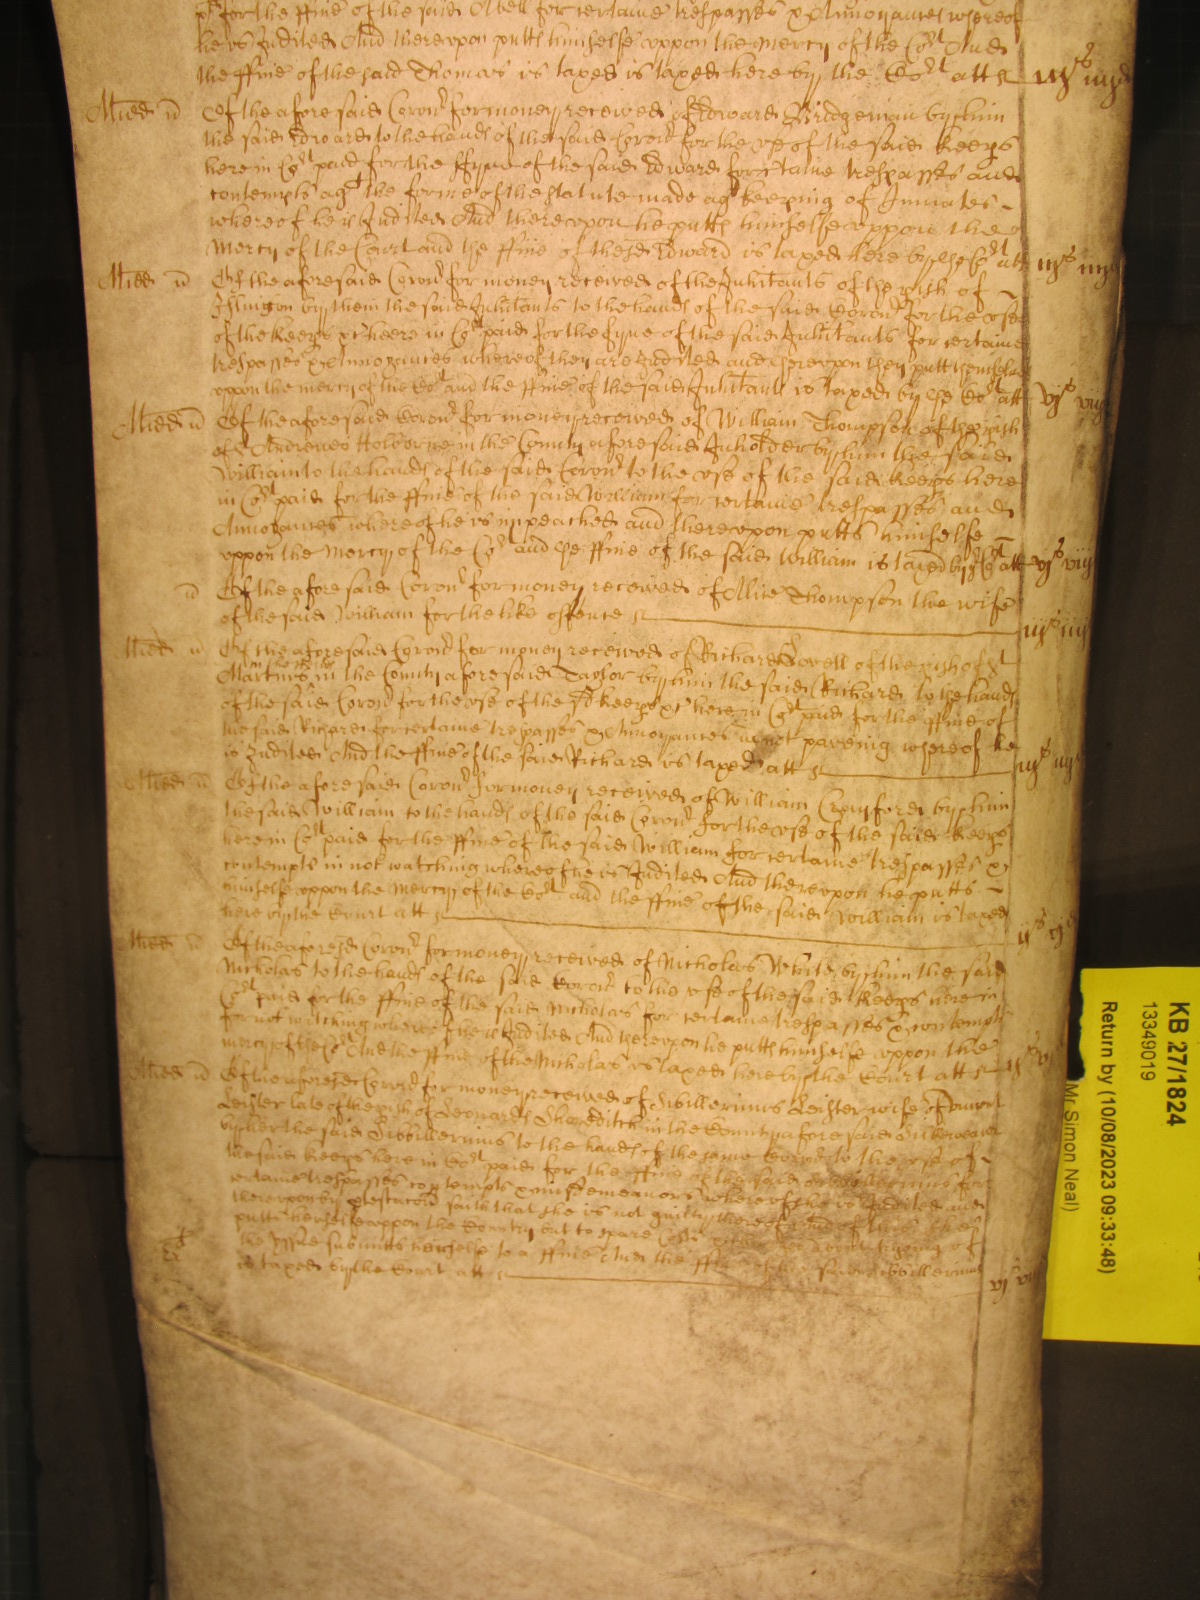 for the ffine of the said Abell for certaine trespasses & Annoyances whereof
he is Indited And thereupon putts himselfe uppon the Mercy of the Cort And
the ffine of the said Thomas is taxed is taxed here by the Cort att iijs iiijd
Midd Of the aforesaid Coron' for money received of Edward Bridgeman by him
the said Edward to the hands of the said Coron' for the use of the said Keeps
here in Cort paid for the ffyne of the said Edward for certaine trespasses and
contempts agt the forme of the statute made agt keeping of Inmates
whereof he is Indited And thereupon he putts himselfe uppon the
Mercy of the Court and the ffine of the sd Edward is taxed here by the Cort att iijs iiijd
Midd Of the aforesaid Coron' for money received of the Inhitants of the pish of
Islington by them the said Inhitants to the hands of the said Coron' for the use
of the Keeps &c heere in Cort paid for the fyne of the said Inhitants for certaine
trespasses & Annoyances whereof they are Indited and thereupon they putt themselves
uppon the mercy of the Cort and the ffine of the said Inhitants is taxed by the Cort att vjs viijd
Midd Of the aforesaid Coron' for money received of William Thompson of the pish
of Andrewes Holborne in the County aforesaid Inholder by him the said
William to the hands of the said Coron' to the use of the said Keeps here
in Cort paid for the ffine of the said William for certaine trespasses and
Annoyances whereof he is impeached and thereupon putts himselfe
uppon the Mercy of the Cort and the ffine of the said William is taxed by the Cort att vjs viijd
Of the aforesaid Coron' for money received of Alice Thompson the wife
of the said William for the like offence iijs iiijd
Midd Of the aforesaid Coron' for money received of Richard Lovell of the pish of St
Martins in the County aforesaid Taylor by him the said Richard to the hands
of the said Coron' for the use of the sd Keeps &c here in Cort paid for the ffine of
the said Richard for certaine trespasses & Annoyances in not paveing whereof he
is Indited And the ffine of the said Richard is taxed att iijs iiijd
Midd Of the aforesaid Coron' for money received of William Crayford by him
the said William to the hands of the said Coron' for the use of the said Keeps
here in Cort paid for the ffine of the said William for certaine trespasses &
contempts in not watching whereof he is Indited And thereupon he putts
himselfe uppon the Mercy of the Cort and the ffine of the said William is taxed
here by the Court att ijs vjd
Midd Of the aforesd Coron' for money received of Nicholas White by him the said
Nicholas to the hands of the said Coron' to the use of the said Keeps here in
Cort paid for the ffine of the said Nicholas for certaine trespasses & contempts
for not watching whereof he is Indited And thereupon he putts himselfe uppon the
mercy of the Cort And the ffine of the Nicholas is taxed here by the Court att ijs vjd
Midd Of the aforesd Coron' for money received of Sibillerinus Leister wife of
Leister late of the pish of Leonards Shoreditch in the County aforesaid Silkeweaver
by her the said Sibbillerinus to the hands of the same Coron' to the use of
the said Keeps here in Cort paid for the ffine of the said Sibbillerinus for
certaine trespasses contempts & misdemeanors whereof she is Indited and
thereupon by saith that she is not guilty thereof And of this shee
putts herselfe uppon the Country but to spare trying of
the Issue submitts herselfe to a ffine And the ffine of the said Sibbillerinus
is taxed by the Court att vjs viijd
KB 27/1824
13349019
Return by (10/08/2023 09:33:48)
Mr Simon Neal)